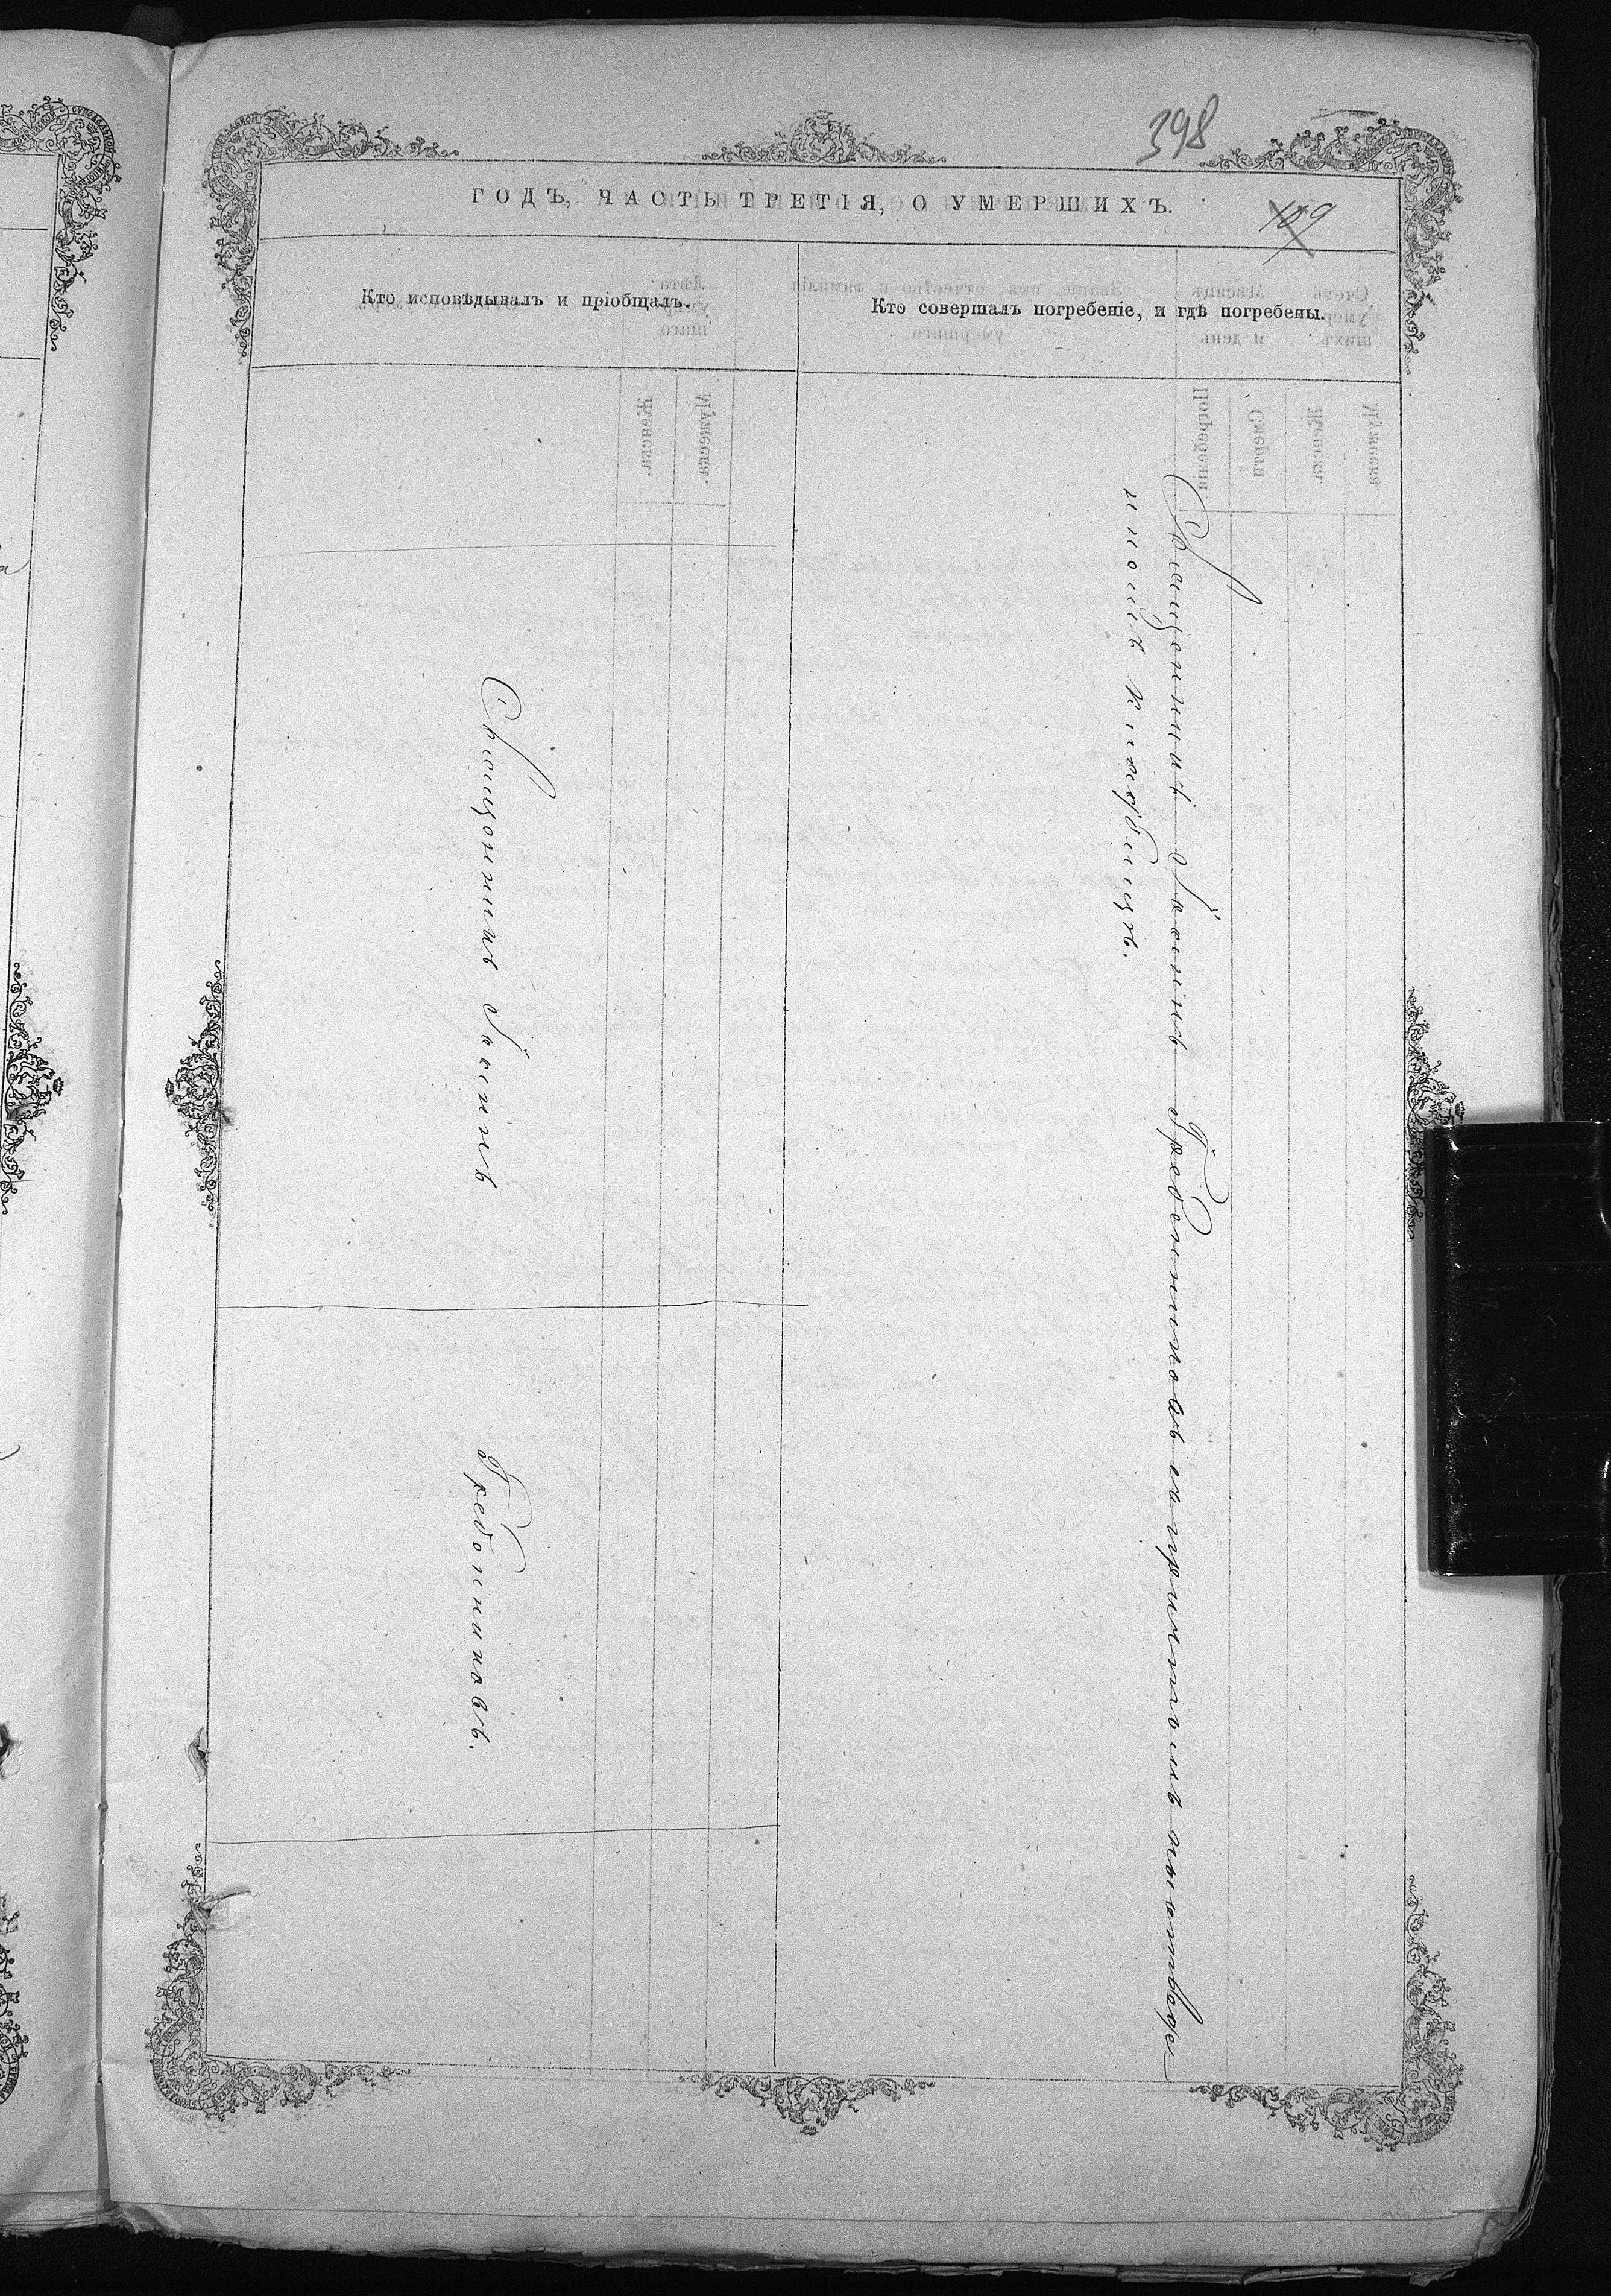 398
ГОДЪ, ЧАСТЬ ТРЕТІЯ, О УМЕРШИХЪ.
109
Кто исповѣдывалъ и пріобщалъ.
Кто совершалъ погребеніе, и гдѣ погребены.
Священникъ Іоаннъ Гребенниковъ съ причтомъ на отведе-
номъ кладбищѣ.
Священникъ Іоаннъ
Гребенниковъ.